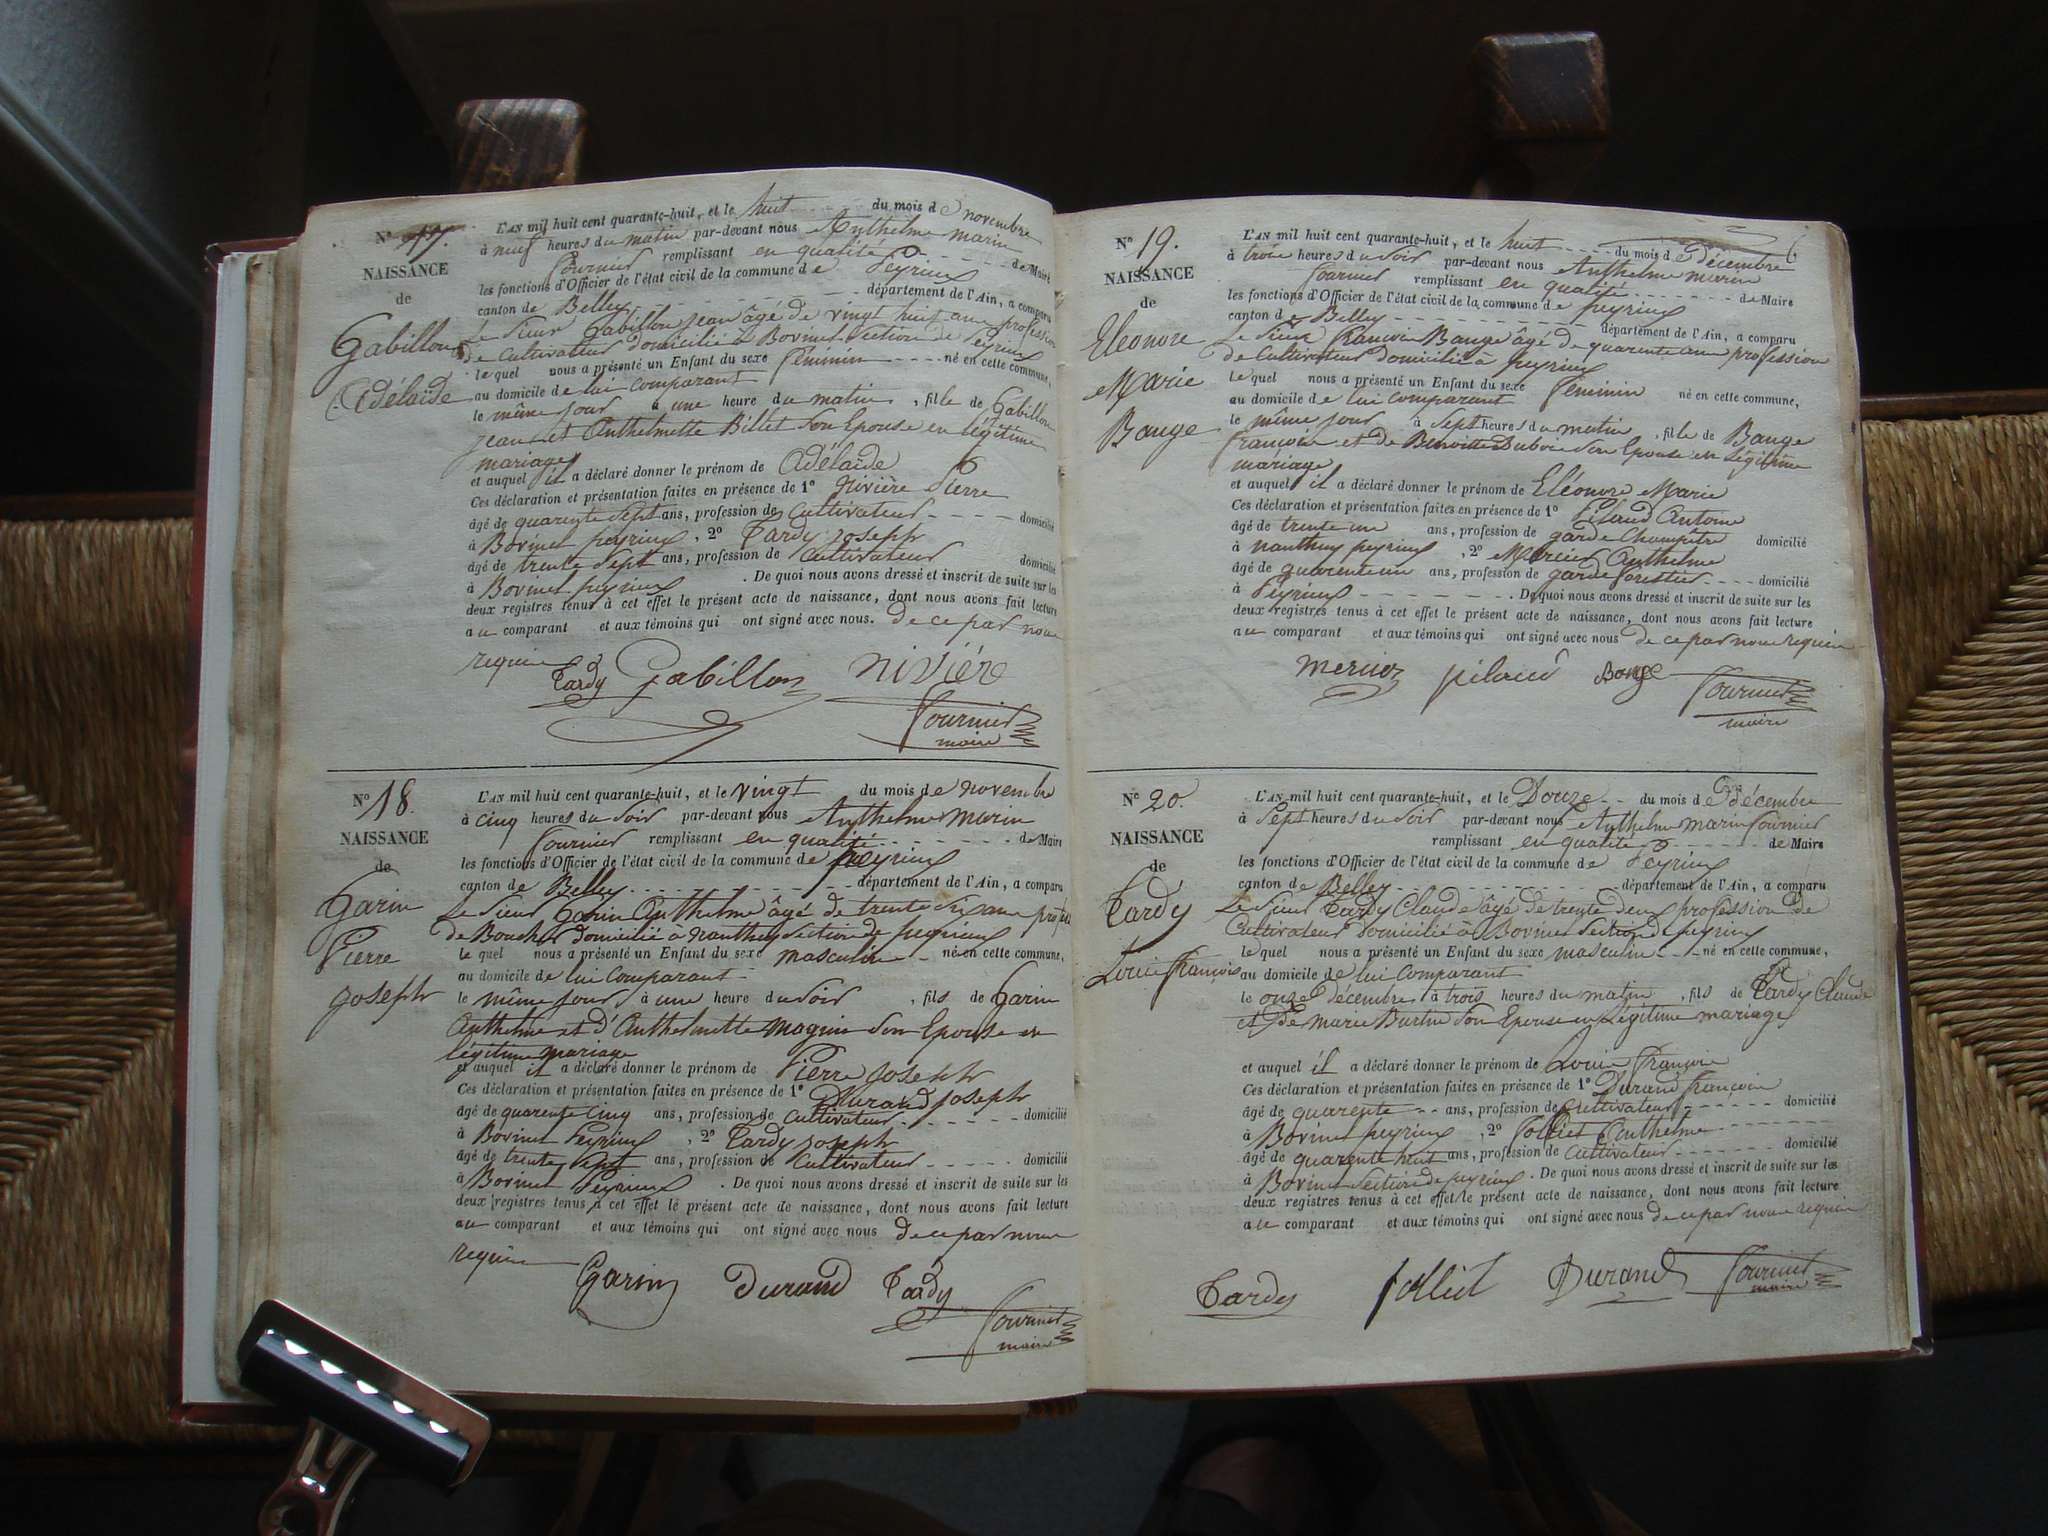 N° 17.
NAISSANCE
de
Gabillon
Adélaïde
L'AN mil huit cent quarante-huit, et le huit du mois de novembre
à neuf heures du matin par-devant nous Anthelme Marin
Fournier remplissant en qualité de Maire
les fonctions d'Officier de l'état civil de la commune de Peyrieu
canton de Belley département de l'Ain, a comparu
Le Sieur Gabillon jean âgé de vingt huit ans profession
de Cultivateur domicilié à Bovinet Section de Peyrieu
lequel nous a présenté un Enfant du sexe féminin né en cette commune,
au domicile de lui comparant
le même jour à une heure du matin, fille de Gabillon
jean et Anthelmette Billet Son Epouse en légitime
mariage
et auquel il a déclaré donner le prénom de Adélaïde
Ces déclaration et présentation faites en présence de 1° Nivière Pierre
âgé de quarente Sept ans, profession de Cultivateur domicilié
à Bovinet peyrieu, 2° Tardy joseph
âgé de trente Sept ans, profession de Cultivateur domicilié
à Bovinet peyrieu. De quoi nous avons dressé et inscrit de suite sur les
deux registres tenus à cet effet le présent acte de naissance, dont nous avons fait lecture
au comparant et aux témoins qui ont signé avec nous. de ce par nous
requis
Tardy Gabillon nivière
Fournier
maire
N° 18.
NAISSANCE
de
Garin
Pierre
joseph
L'AN mil huit cent quarante-huit, et le vingt du mois de novembre
à cinq heures du Soir par-devant nous Anthelme Marin
Fournier remplissant en qualité de Maire
les fonctions d'Officier de l'état civil de la commune de peyrieu
canton de Belley département de l'Ain, a comparu
Le Sieur Garin Anthelme âgé de trente Six ans profes
de Boucher domicilié à nanthuy Section de peyrieux
lequel nous a présenté un Enfant du sexe masculin né en cette commune,
au domicile de lui Comparant
le même jour à une heure du Soir, fils de Garin
Anthelme et d'Anthelmette Magnin Son Epouse en
légitime mariage
et auquel il a déclaré donner le prénom de Pierre joseph
Ces déclaration et présentation faites en présence de 1° Durand joseph
âgé de quarente cinq ans, profession de Cultivateur domicilié
à Bovinet Peyrieu, 2° Tardy joseph
âgé de trente Sept ans, profession de Cultivateur domicilié
à Bovinet Peyrieux. De quoi nous avons dressé et inscrit de suite sur les
deux registres tenus à cet effet le présent acte de naissance, dont nous avons fait lecture
au comparant et aux témoins qui ont signé avec nous de ce par nous
requis
Garin Durand Tardy
Fournier
maire
N° 19.
NAISSANCE
de
Eléonore
Marie
Bauge
L'AN mil huit cent quarante-huit, et le huit du mois de décembre
à trois heures du Soir par-devant nous Anthelme marin
Fournier remplissant en qualité de Maire
les fonctions d'Officier de l'état civil de la commune de peyrieu
canton de Belley département de l'Ain, a comparu
Le Sieur François Bauge âgé de quarente ans profession
de Cultivateur domicilié à peyrieu
lequel nous a présenté un Enfant du sexe féminin né en cette commune,
au domicile de lui comparant
le même jour à Sept heures du matin, fille de Bauge
françois et de Benoitte Dubois Son Epouse en légitime
mariage
et auquel il a déclaré donner le prénom de Eléonore Marie
Ces déclaration et présentation faites en présence de 1° Pilaud Antoine
âgé de trente un ans, profession de garde Champêtre domicilié
à nanthuy peyrieu, 2° Mercier Anthelme
âgé de quarente un ans, profession de garde forestier domicilié
à Peyrieu. De quoi nous avons dressé et inscrit de suite sur les
deux registres tenus à cet effet le présent acte de naissance, dont nous avons fait lecture
au comparant et aux témoins qui ont signé avec nous de ce par nous requis
mercier pilaud Bauge Fournier
maire
N° 20.
NAISSANCE
de
Tardy
Louis françois
L'AN mil huit cent quarante-huit, et le Douze du mois de décembre
à Sept heures du Soir par-devant nous Anthelme Marin Fournier
remplissant en qualité de Maire
les fonctions d'Officier de l'état civil de la commune de Peyrieu
canton de Belley département de l'Ain, a comparu
Le Sieur Tardy Claude âgé de trente deux profession de
Cultivateur domicilié à Bovinet Section de peyrieu
lequel nous a présenté un Enfant du sexe masculin né en cette commune,
au domicile de lui Comparant
le onze décembre à trois heures du matin, fils de Tardy Claude
et de Marie Burtin Son Epouse en légitime mariage
et auquel il a déclaré donner le prénom de Louis françois
Ces déclaration et présentation faites en présence de 1° Durand françois
âgé de quarente ans, profession de Cultivateur domicilié
à Bovinet peyrieu, 2° Jolliet Anthelme
âgé de quarente huit ans, profession de Cultivateur domicilié
à Bovinet Section de peyrieu. De quoi nous avons dressé et inscrit de suite sur les
deux registres tenus à cet effet le présent acte de naissance, dont nous avons fait lecture
au comparant et aux témoins qui ont signé avec nous de ce par nous requis
Tardy jolliet Durand Fournier
maire